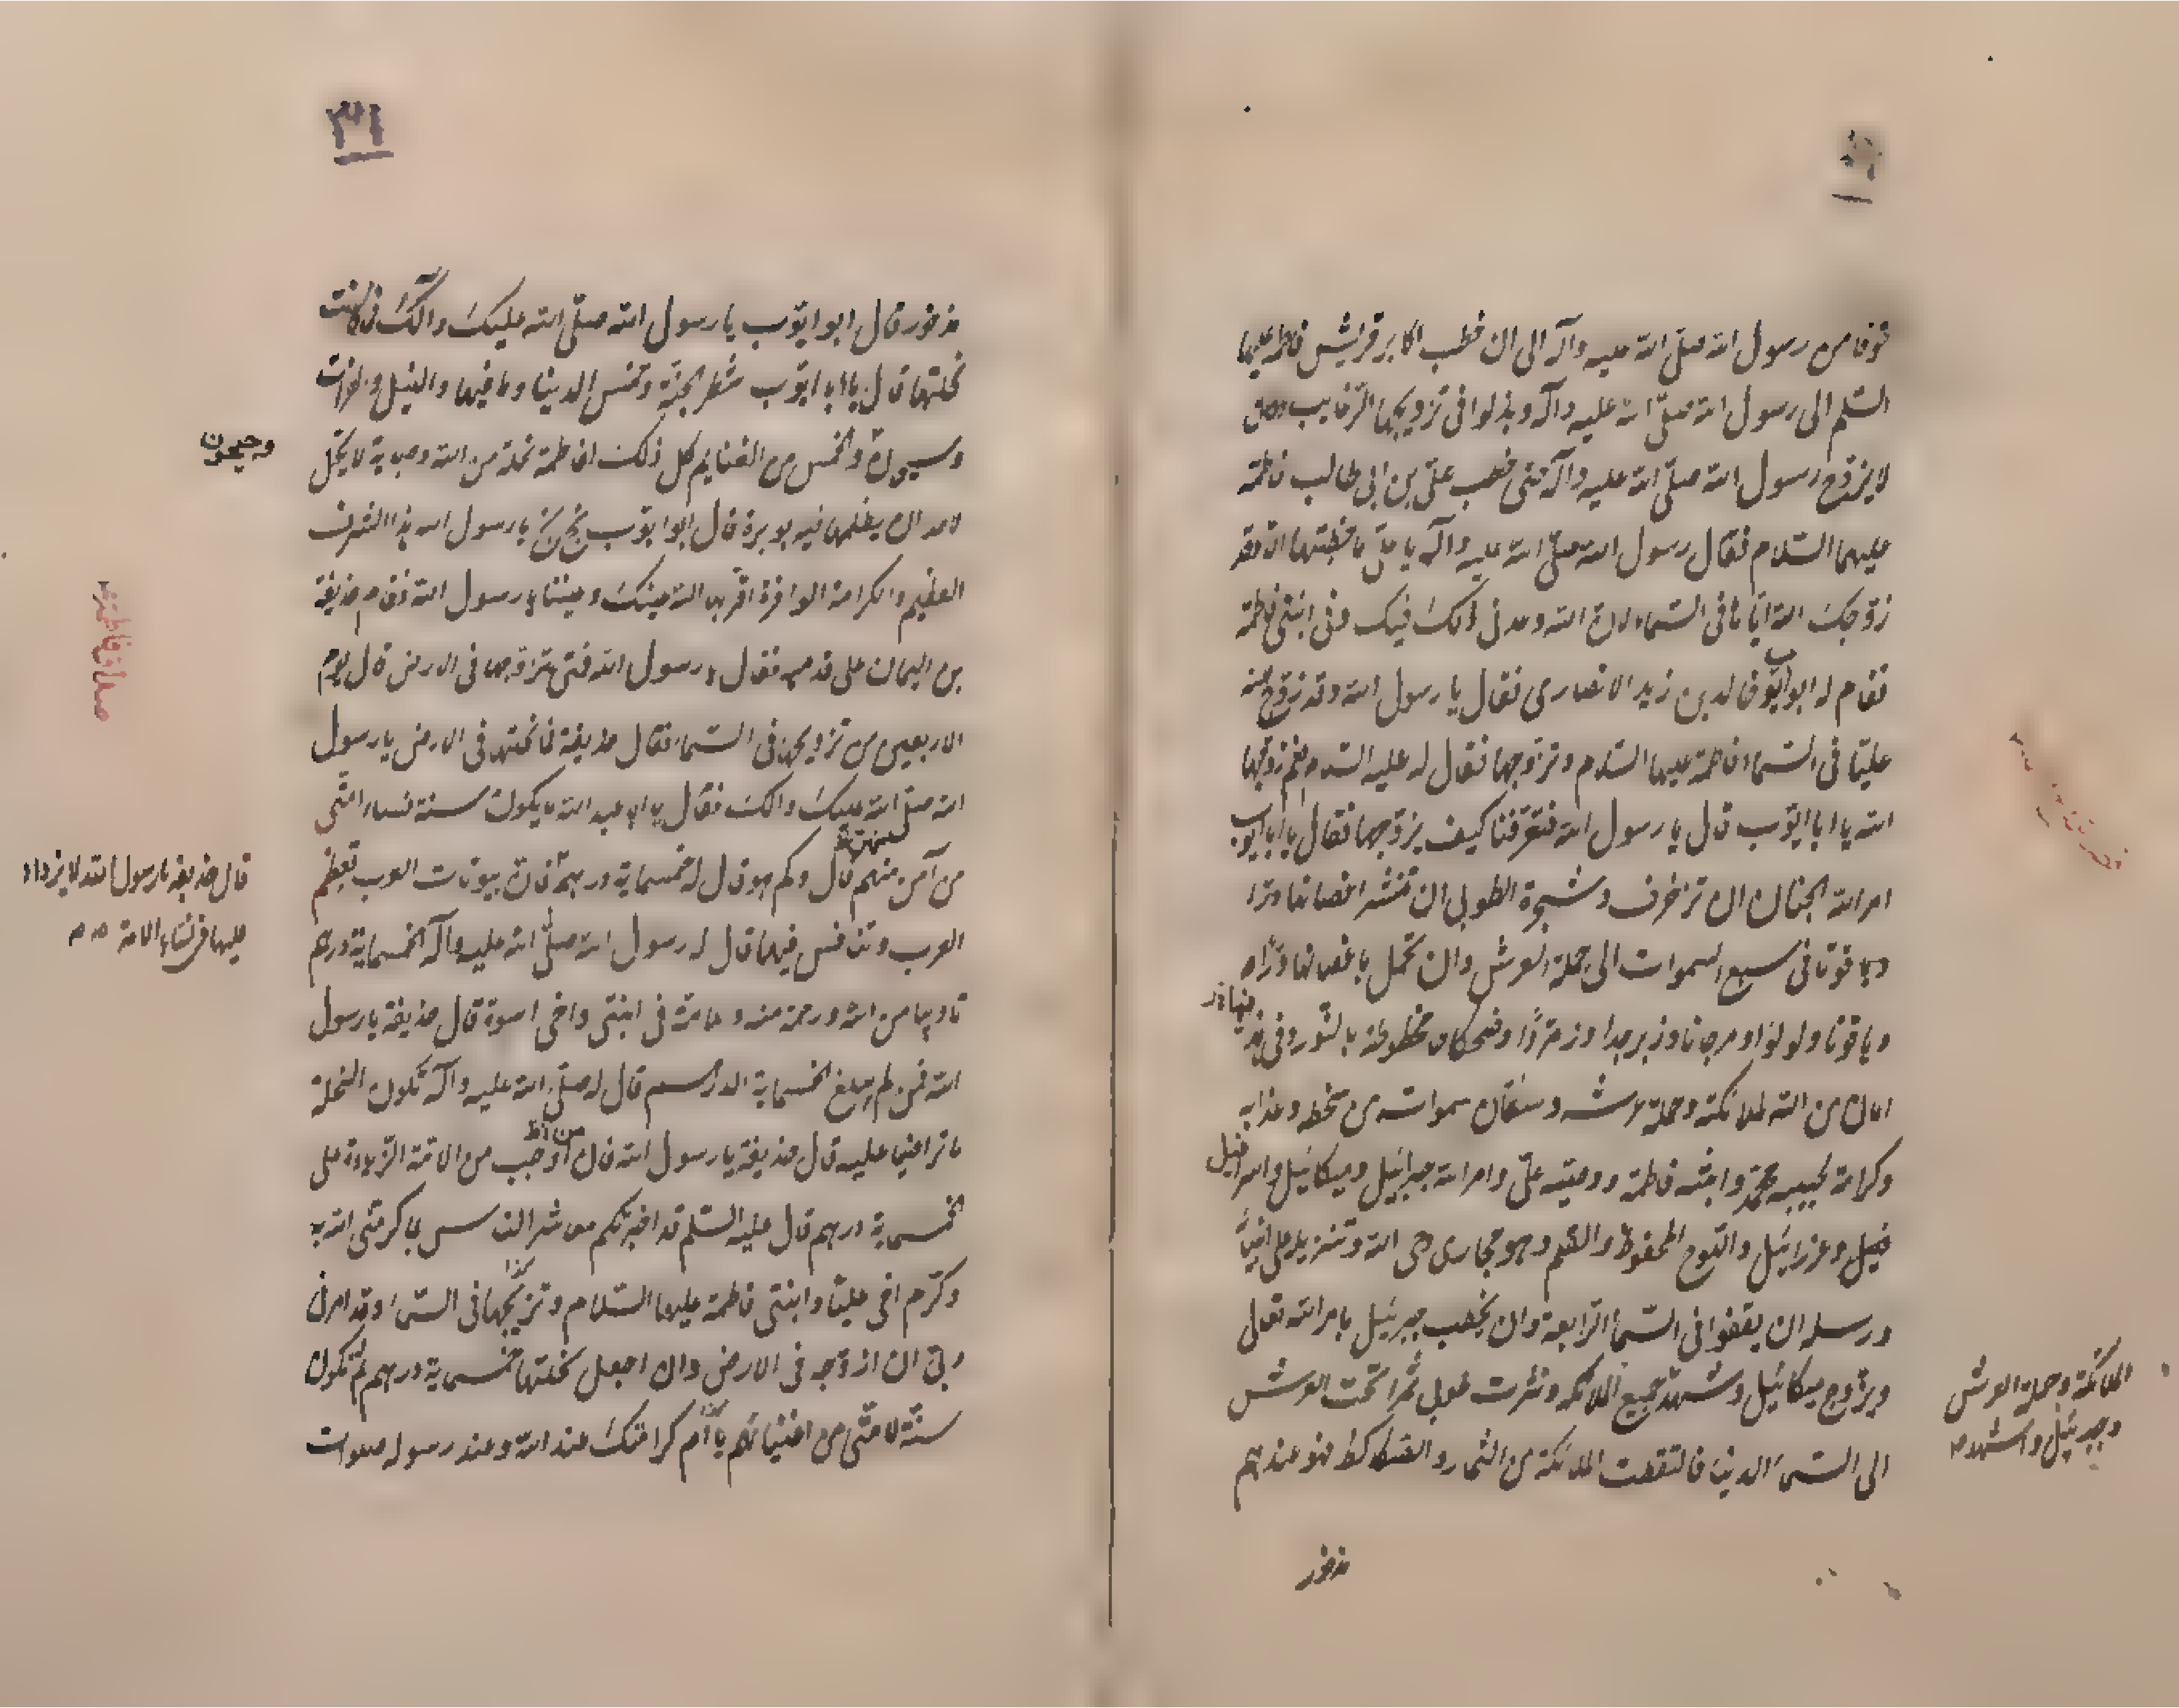 خوفا من رسول الله صلّى الله عليه وآله الى ان خطب اكابر قريش فاطمة عليها
السّلم الى رسول الله صلّى الله عليه وآله وبذلوا فى تزويجها الرّغايب وكان
لا يزوّج رسول الله صلّى الله عليه وآله حتى خطب علىّ بن ابى طالب فاطمة
عليهما السّلام فقال رسول الله صلّى الله عليه وآله يا علىّ ما خطبتها الا وقد
زوّجك الله ايّاها فى السّماء لان الله وعدنى ذلك فيك وفى ابنتى فاطمة
فقام له ابو ايّوب خالد بن زيد الانصارى فقال يا رسول الله وقد زوّج الله
عليّا فى السّماء فاطمة عليها السّلام وتزوّجها فقال له عليه السّلام نعم زوّجها
الله يا ابا ايّوب قال يا رسول الله فتعرّفنا كيف يزوّجها فقال يا ابا ايّوب
امر الله الجنان ان تزخرف وشجرة الطوبى ان تنشر اغصانها
فى سبع السموات الى حملة العرش وان تحمل باغصانها درّاً
وياقوتا ولولوا ومرجانا وزبرجدا وزمرّدا وصكاك مخطوطة بالنّور
امان من الله لملائكته وحملة عرشه وسكّان سمواته من سخطه وعذابه
وكرامة لحبيبه محمّد وابنته فاطمة ووصيّه علىّ وامر الله جبرائيل وميكائيل واسرافيل
وعزرائيل واللّوح المحفوظ والقلم وهو مجارى وحى الله وتنزيله على انبيائه
ورسله ان يقفوا فى السّماء الرّابعة وان يخطب جبرئيل بامر الله تعالى
ويزوّج ميكائيل وشهد جميع الملائكة ونثرت طوبى ثمرا تحت العرش
الملائكة وحملة العرش
وجبرئيل
الى السّماء الدنيا فالتقطت الملائكة من الثمار والصكاك فهو عندهم
مذخور
٣١
مذخور قال ابو ايّوب يا رسول الله صلّى الله عليك وآلك فما كانت
نحلتها قال يا ابا ايّوب شطر الجنّة وخمس الدنيا وما فيها والنيل والفرات
وسيحون والخمس من الغنايم كل ذلك لفاطمة نحلة من الله وحباية لا يحلّ
وجيحون
لاحد ان يظلمها فيه بوبرة قال ابو ايّوب بخ بخ يا رسول الله هذا الشرف
العظيم والكرامة الوافرة اقرّ الله عينك وعيننا يا رسول الله فقام حذيفة
بن اليمان على قدميه فقال يا رسول الله فمتى تزوّجها فى الارض قال يوم
الاربعين من تزويجها فى السّماء فقال حذيفة فما نحلتها فى الارض يا رسول
الله صلّى الله عليك وآلك فقال يا ابا عبد الله ما يكون سنة نساء امّتى
من آمن منهم قال وكم هو قال له خمسماية درهم قال بيوتات العرب تعظم
قال حذيفة يا رسول الله لا يزداد
عليها فى نساء الامة
العرب وتنافس فيها قال له رسول الله صلّى الله عليه وآله الخمسماية درهم
تاديبا من الله ورحمة منه فى ابنتى واخى اسوة قال حذيفة يا رسول
الله فمن لم يبلغ الخمسماية الدرهم قال له صلّى الله عليه وآله تكون النحلة
ما تراضيا عليه قال حذيفة يا رسول الله فان اوجب من الامّة الزيادة على
الخمسماية درهم قال عليه السّلم قد اخبرتكم معاشر الناس بما كرمنى الله به
وكرّم اخى عليّا وابنتى فاطمة عليهما السّلام وتزويجها فى السّماء وقد امرنى
ربى ان ازوّجه فى الارض وان اجعل نحلتها خمسماية درهم ثمّ تكون
سنّة لامّتى من اغنيائهم كرامتك عند الله وعند رسوله صلوات
صداق فاطمة